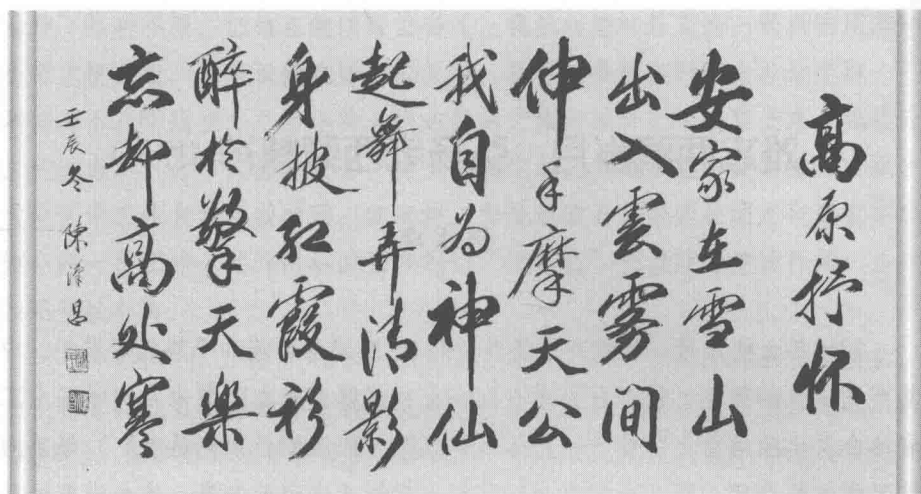 高原抒怀
安家在雪山
出入雲雾间
伸手摩天公
我自为神仙
起舞弄清影
身披红霞衫
醉於擎天樂
忘却高处寒
壬辰冬 陈泽昌